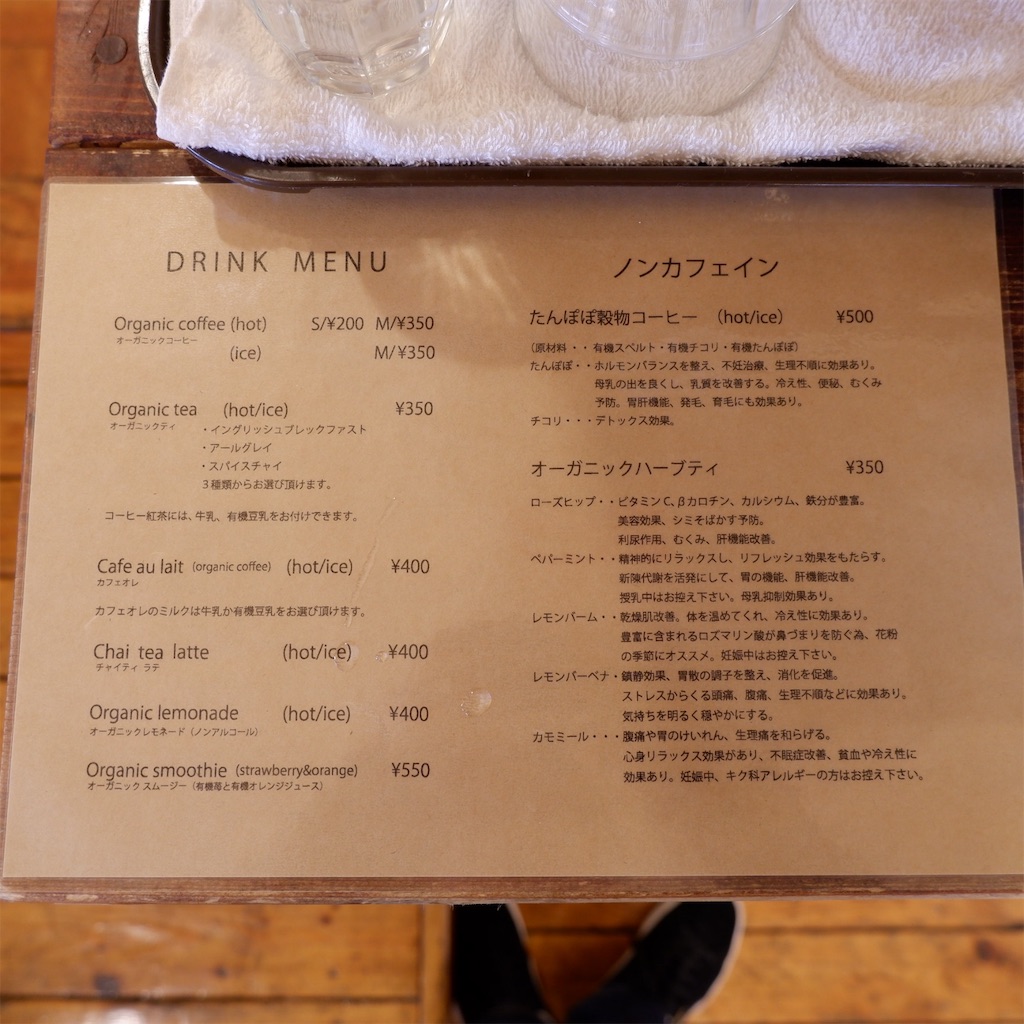 DRINK MENU
Organic coffee (hot) S/¥200 M/¥350
オーガニックコーヒー
(ice) M/¥350
Organic tea (hot/ice) ¥350
オーガニックティ
・イングリッシュブレックファスト
・アールグレイ
・スパイスチャイ
３種類からお選び頂けます。
コーヒー紅茶には、牛乳、有機豆乳をお付けできます。
Cafe au lait (organic coffee) (hot/ice) ¥400
カフェオレ
カフェオレのミルクは牛乳か有機豆乳をお選び頂けます。
Chai tea latte (hot/ice) ¥400
チャイティ ラテ
Organic lemonade (hot/ice) ¥400
オーガニックレモネード（ノンアルコール）
Organic smoothie (strawberry&orange) ¥550
オーガニック スムージー（有機苺と有機オレンジジュース）
ノンカフェイン
たんぽぽ穀物コーヒー （hot/ice） ¥500
（原材料・・有機スペルト・有機チコリ・有機たんぽぽ）
たんぽぽ・・ホルモンバランスを整え、不妊治療、生理不順に効果あり。
母乳の出を良くし、乳質を改善する。冷え性、便秘、むくみ
予防。胃肝機能、発毛、育毛にも効果あり。
チコリ・・・デトックス効果。
オーガニックハーブティ ¥350
ローズヒップ・・ビタミンC、βカロチン、カルシウム、鉄分が豊富。
美容効果、シミそばかす予防。
利尿作用、むくみ、肝機能改善。
ペパーミント・・精神的にリラックスし、リフレッシュ効果をもたらす。
新陳代謝を活発にして、胃の機能、肝機能改善。
授乳中はお控え下さい。母乳抑制効果あり。
レモンバーム・・乾燥肌改善。体を温めてくれ、冷え性に効果あり。
豊富に含まれるロズマリン酸が鼻づまりを防ぐ為、花粉
の季節にオススメ。妊娠中はお控え下さい。
レモンバーベナ・鎮静効果、胃散の調子を整え、消化を促進。
ストレスからくる頭痛、腹痛、生理不順などに効果あり。
気持ちを明るく穏やかにする。
カモミール・・・腹痛や胃のけいれん、生理痛を和らげる。
心身リラックス効果があり、不眠症改善、貧血や冷え性に
効果あり。妊娠中、キク科アレルギーの方はお控え下さい。